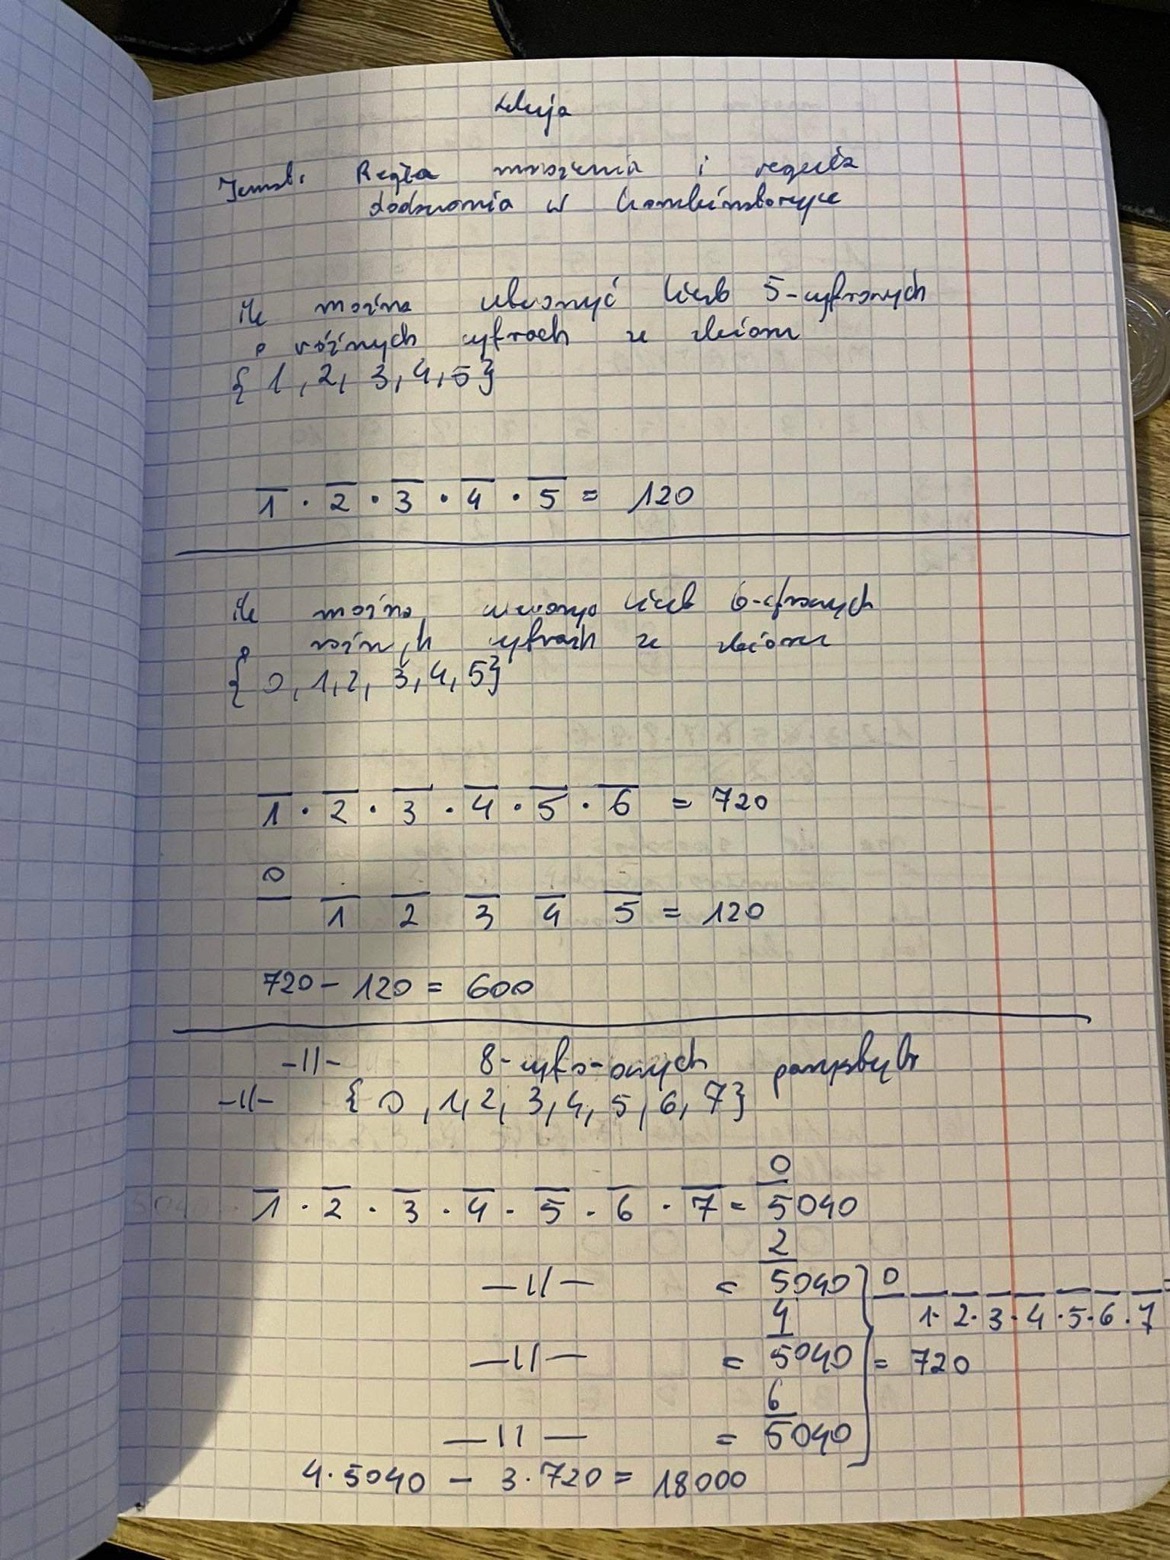 Lekcja
Temat. Reguła mnożenia i reguła
dodawania w kombinatoryce
ile można utworzyć liczb 5-cyfrowych
o różnych cyfrach ze zbioru
{1, 2, 3, 4, 5}
1 · 2 · 3 · 4 · 5 = 120
ile można liczb 6-cfrowych
o cyfrach ze zbioru
{0, 1, 2, 3, 4, 5}
1 · 2 · 3 · 4 · 5 · 6 = 720
0
1 2 3 4 5 = 120
720 - 120 = 600
-11- 8-cyfrowych parzystych
-11- {0, 1, 2, 3, 4, 5, 6, 7}
0
1 · 2 · 3 · 4 · 5 · 6 · 7 = 5040
2
-11- = 5040 } 0
4 1 · 2 · 3 · 4 · 5 · 6 · 7 =
-11- = 5040 = 720
6
-11- = 5040
4 · 5040 - 3 · 720 = 18000